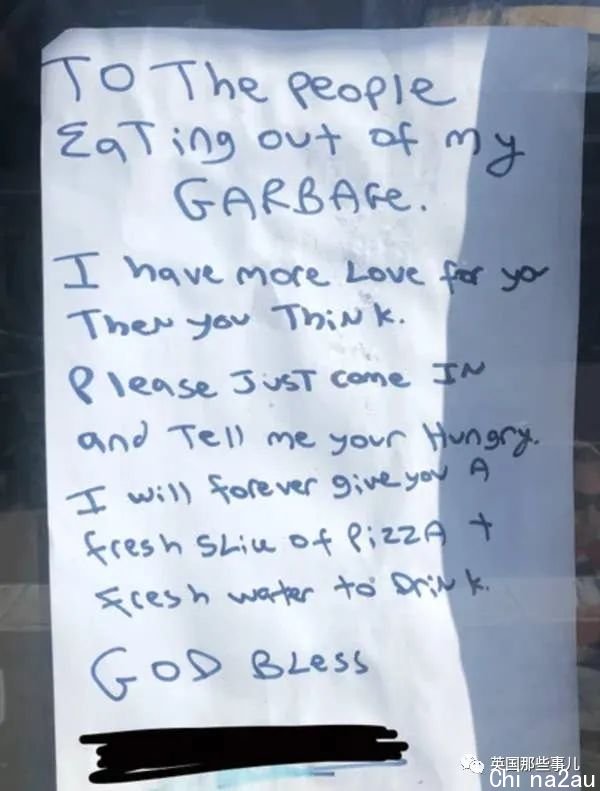 TO The People
EaTing out of my
GARBAGe.
I have more Love for yo
Then you Think.
Please JusT come IN
and Tell me your Hungry.
I will forever give you A
fresh Slice of PizzA +
fresh water to Drink.
GOD BLess
英国那些事儿
Chi na2au